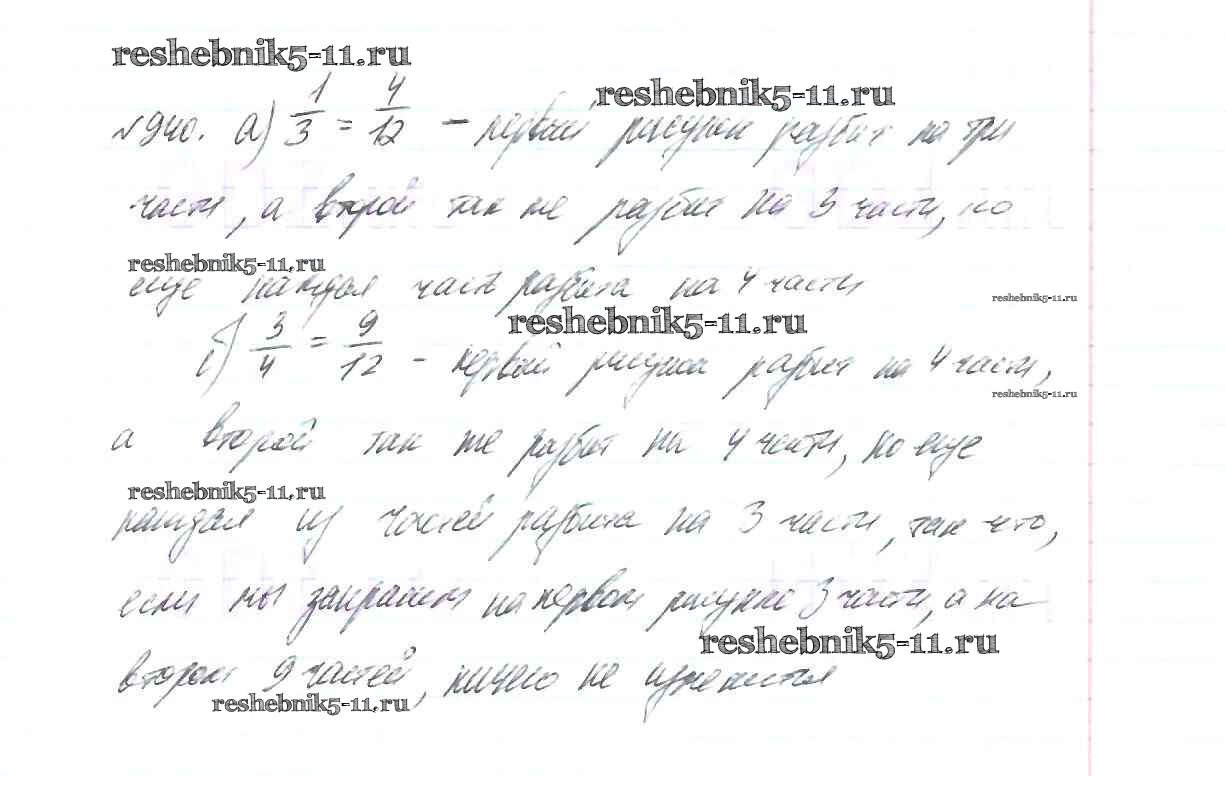 reshebnik5-11.ru
reshebnik5-11.ru
№940. а) 1/3 = 4/12 – первый рисунок разбит на три
части, а второй так же разбит на 3 части, но
reshebnik5-11.ru
еще каждая часть разбита на 4 части
reshebnik5-11.ru
reshebnik5-11.ru
б) 3/4 = 9/12 – первый рисунок разбит на 4 части,
reshebnik5-11.ru
а второй так же разбит на 4 части, но еще
reshebnik5-11.ru
каждая из частей разбита на 3 части, так что,
если мы закрасим на первом рисунке 3 части, а на
reshebnik5-11.ru
втором 9 частей, ничего не изменится
reshebnik5-11.ru